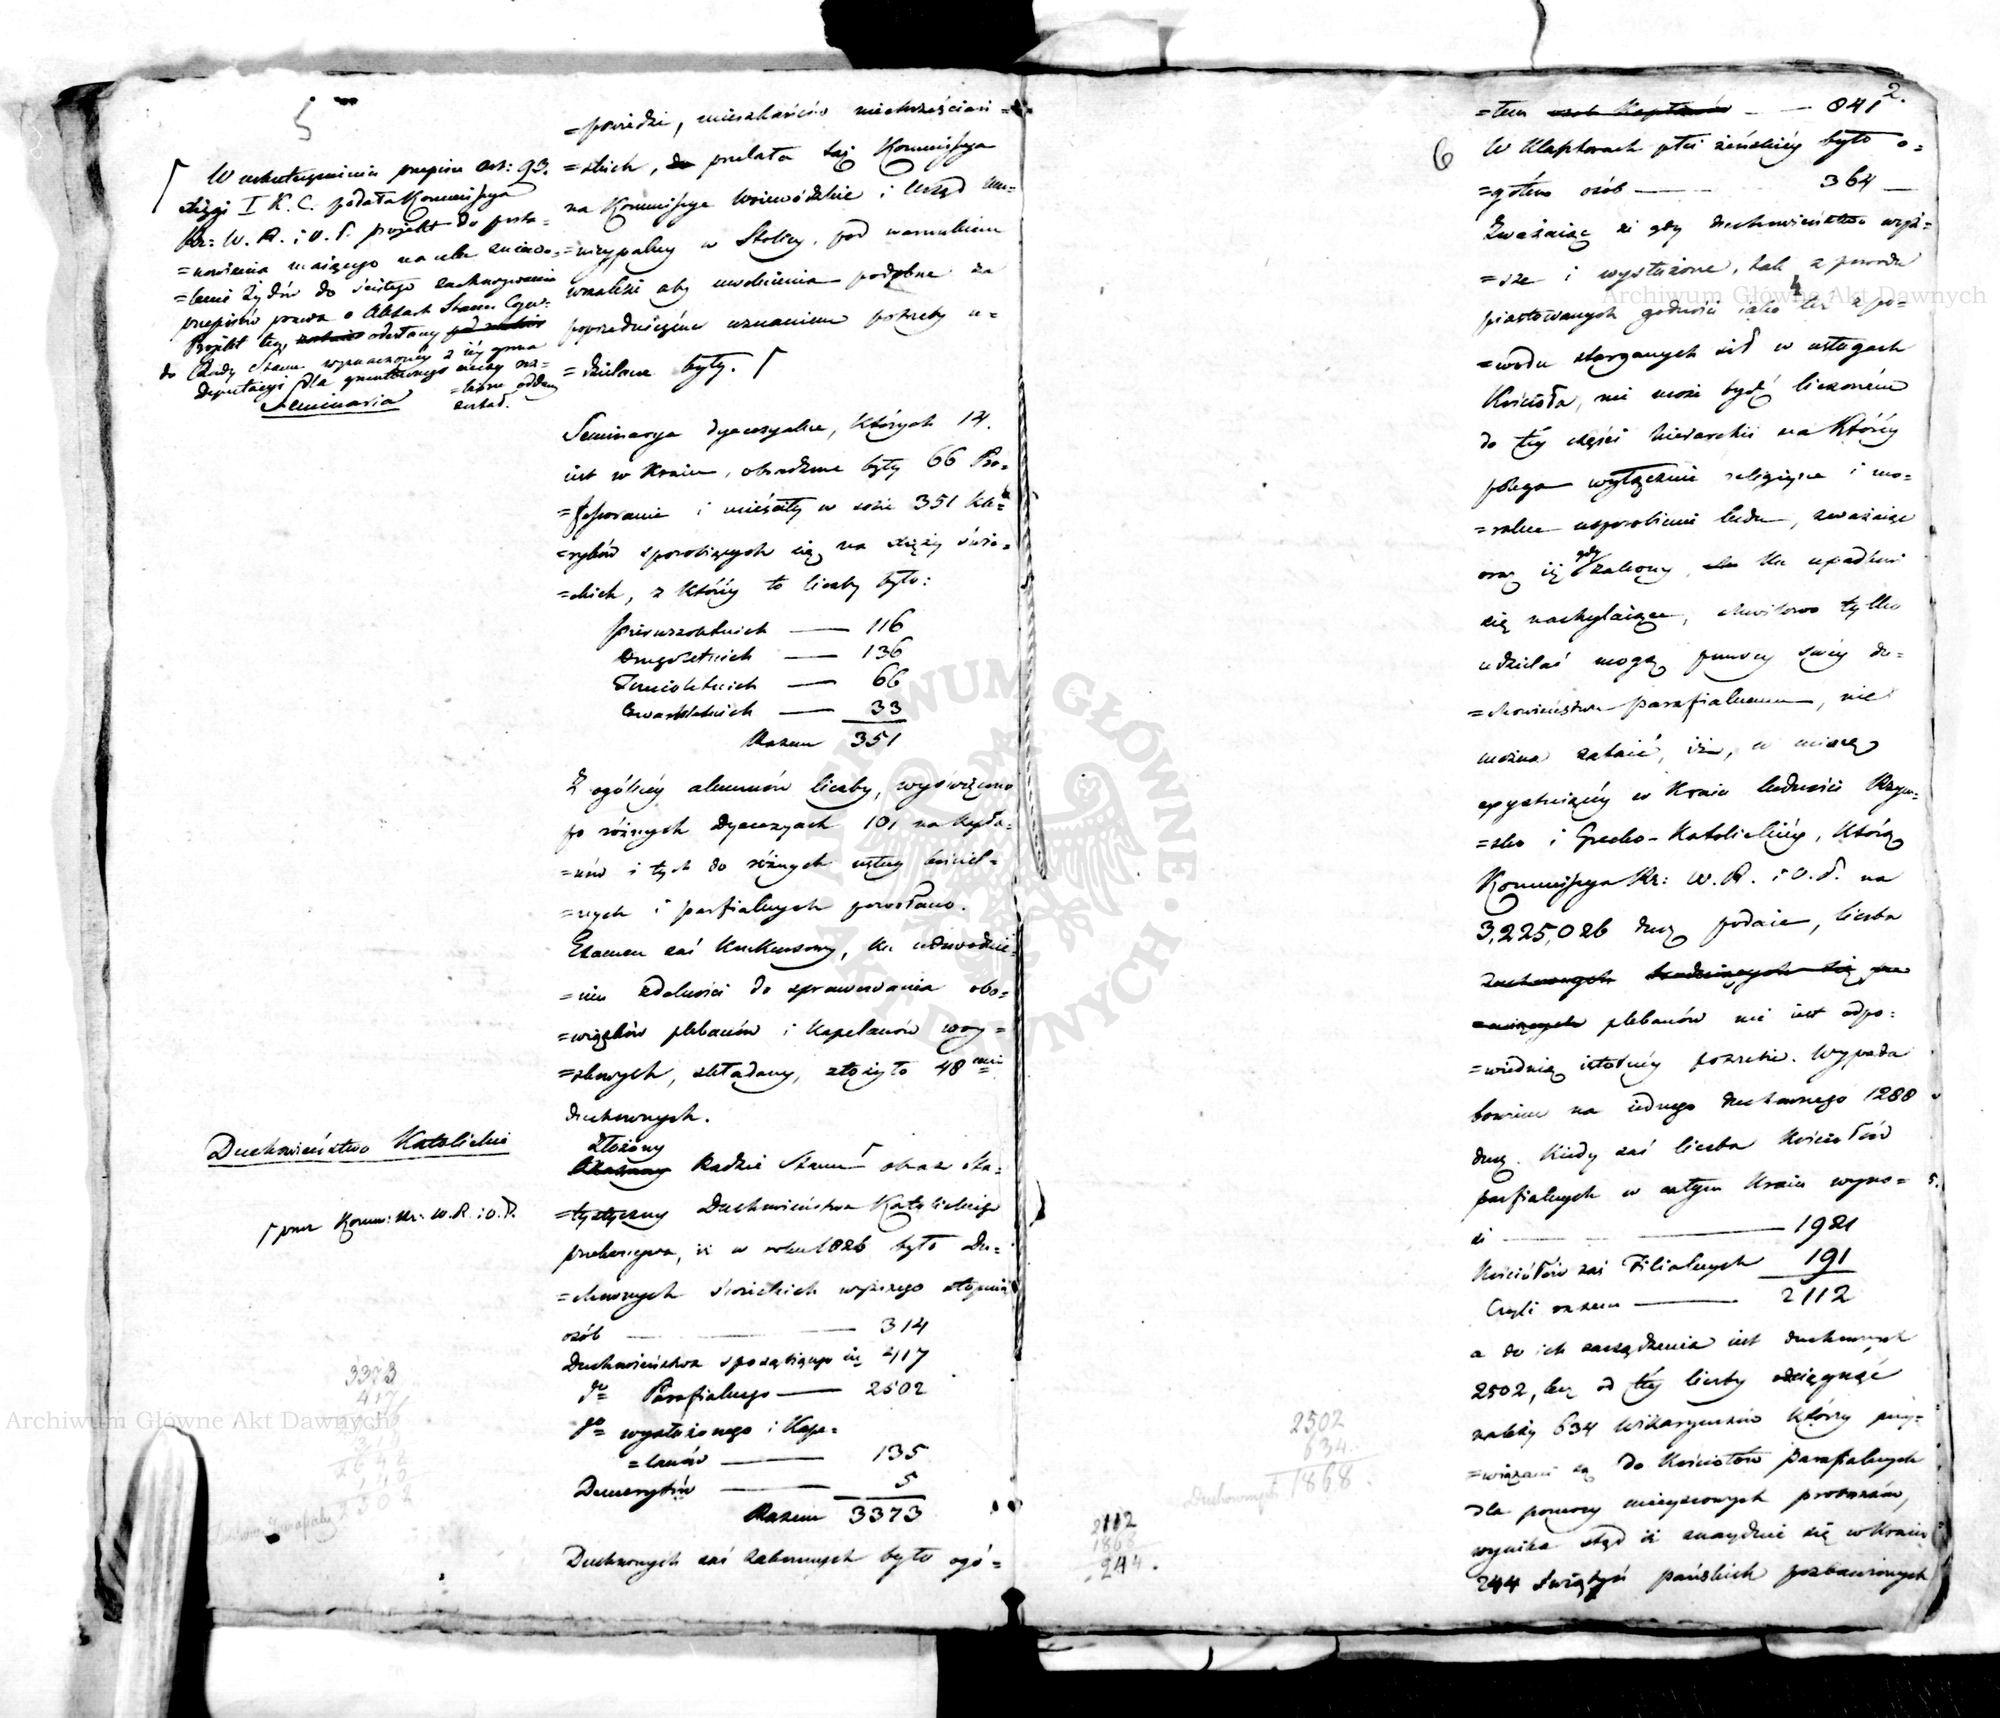 5
W uskutecznieniu przepisu art: 93.
księgi I K. C. podała Kommissya
Rz: W. R. i O. P. projekt do posta-
=nowienia maiącego na celu zniewo-
=lenie Żydów do ścisłego zachowywania
przepisów prawa o Aktach Stanu Cywil:
Projekt ten, odesłany
do Rady Stanu wyznaczoney z iéy grona
Deputacyi dla gruntownego
został.
Seminaria
Duchowieństwo Katolickie
przez Komm: Rz: W. R. i O. P.
3373
417
2502
=powiedzi, mieszkańców niechrześciań=
=skich, przelała taż Kommissya
na Kommissye Woiewódzkie i Urząd Mu=
=nicypalny w Stolicy, pod warunkiem
wszakże aby uwolnienia podobne za
poprzedniczém uznaniem potrzeby u=
=dzielane były.
Seminarya dyecezyalne, których 14.
iest w Kraiu, obsadzone były 66 Pro=
=fessorami i mieściły w sobie 351 kle=
=ryków sposobiących się na księży świe=
=ckich, z któréy to liczby było:
pierwszoletnich — 116
Drugoletnich — 136
Trzecioletnich — 66
Czwartoletnich — 33
Razem 351
Z ogólnéy alumnów liczby, wyświęcono
po różnych Dyecezyach 101 na kapła=
=nów i tych do różnych usług kościel=
=nych i parafialnych powołano.
Examen zaś konkursowy, ku udowodnie=
=niu zdolności do sprawowania obo=
=wiązków plebanów i kapelanów woy=
=skowych, składany, złożyło 48
duchownych.
Złożony
Radzie Stanu obraz sta=
=tystyczny Duchowieństwa Katolickiego
przekonywa, iż w roku 1826 było Du=
=chownych świeckich wyższego stopnia
osób — 314
Duchowieństwa sposobiącego się 417
do Parafialnego — 2502
do wysłużonego i Kape=
=lanów — 135
Demerytów — 5
Razem 3373
Duchownych zaś zakonnych było ogó=
2.
6
=łem — 841
W Klasztorach płci żeńskiéy było o=
=gółem osób — 364 —
Zważaiąc że gdy duchowieństwo wyż=
=sze i wysłużone, tak z powodu
4
piastowanych godności iako też z po=
=wodu starganych sił w usługach
Kościoła, nie może bydź liczoném
do téy części hierarchii na któréy
polega wyłącznie religiyne i mo=
=ralne usposobienie ludu, zważaiąc
oraz iż gdy zakony, ku upadkowi
się nachylaiące, chwilowo tylko
udzielać mogą pomocy swéy du=
=chowieństwu parafialnemu, nie
można zataić, iż, w miarę
exystuiącéy w Kraiu ludności Rzym=
=sko i Grecko-Katolickiéy, którą
Kommissya Rz: W. R. i O. P. na
3,225,026 dusz podaie, liczba
duchownych trudniących się pra=
=cuiących plebanów nie iest odpo=
=wiednią istotnéy potrzebie. Wypada
bowiem na iednego duchownego 1288
dusz. Kiedy zaś liczba kościołów
parafialnych w całym Kraiu wyno=
si — 1921
Kościołów zaś Filialnych 191
Czyli razem — 2112
a do ich zarządzania iest duchownych
2502, lecz od téy liczby odciągnąć
należy 634 Wikaryuszów którzy przy=
=wiązani są do kościołów parafialnych
dla pomocy mieyscowych proboszczów,
wynika stąd iż znayduie się w Kraiu
244 świątyń pańskich pozbawionych
2502
634
Duchownych 1868.
2112
1868
244.
ARCHIWUM GŁÓWNE AKT DAWNYCH
Archiwum Główne Akt Dawnych
Archiwum Główne Akt Dawnych